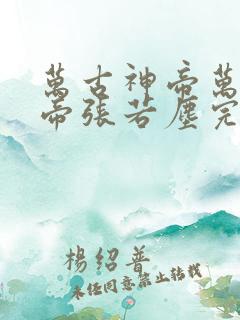 萬古神帝萬
帝張若塵完
楊紹普
未經同意禁止轉載